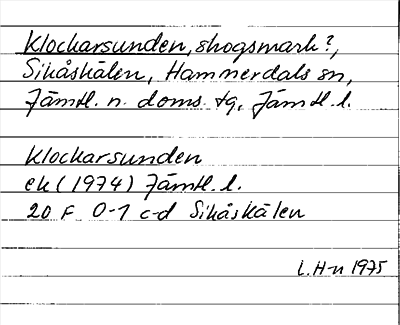 Klockarsunden, skogsmark?,
Sikåskälen, Hammerdals sn,
Jämtl. n. doms. tg, Jämtl. l.
Klockarsunden
ek (1974) Jämtl. l.
20 F 0-1 c-d Sikåskälen
L. H-n 1975